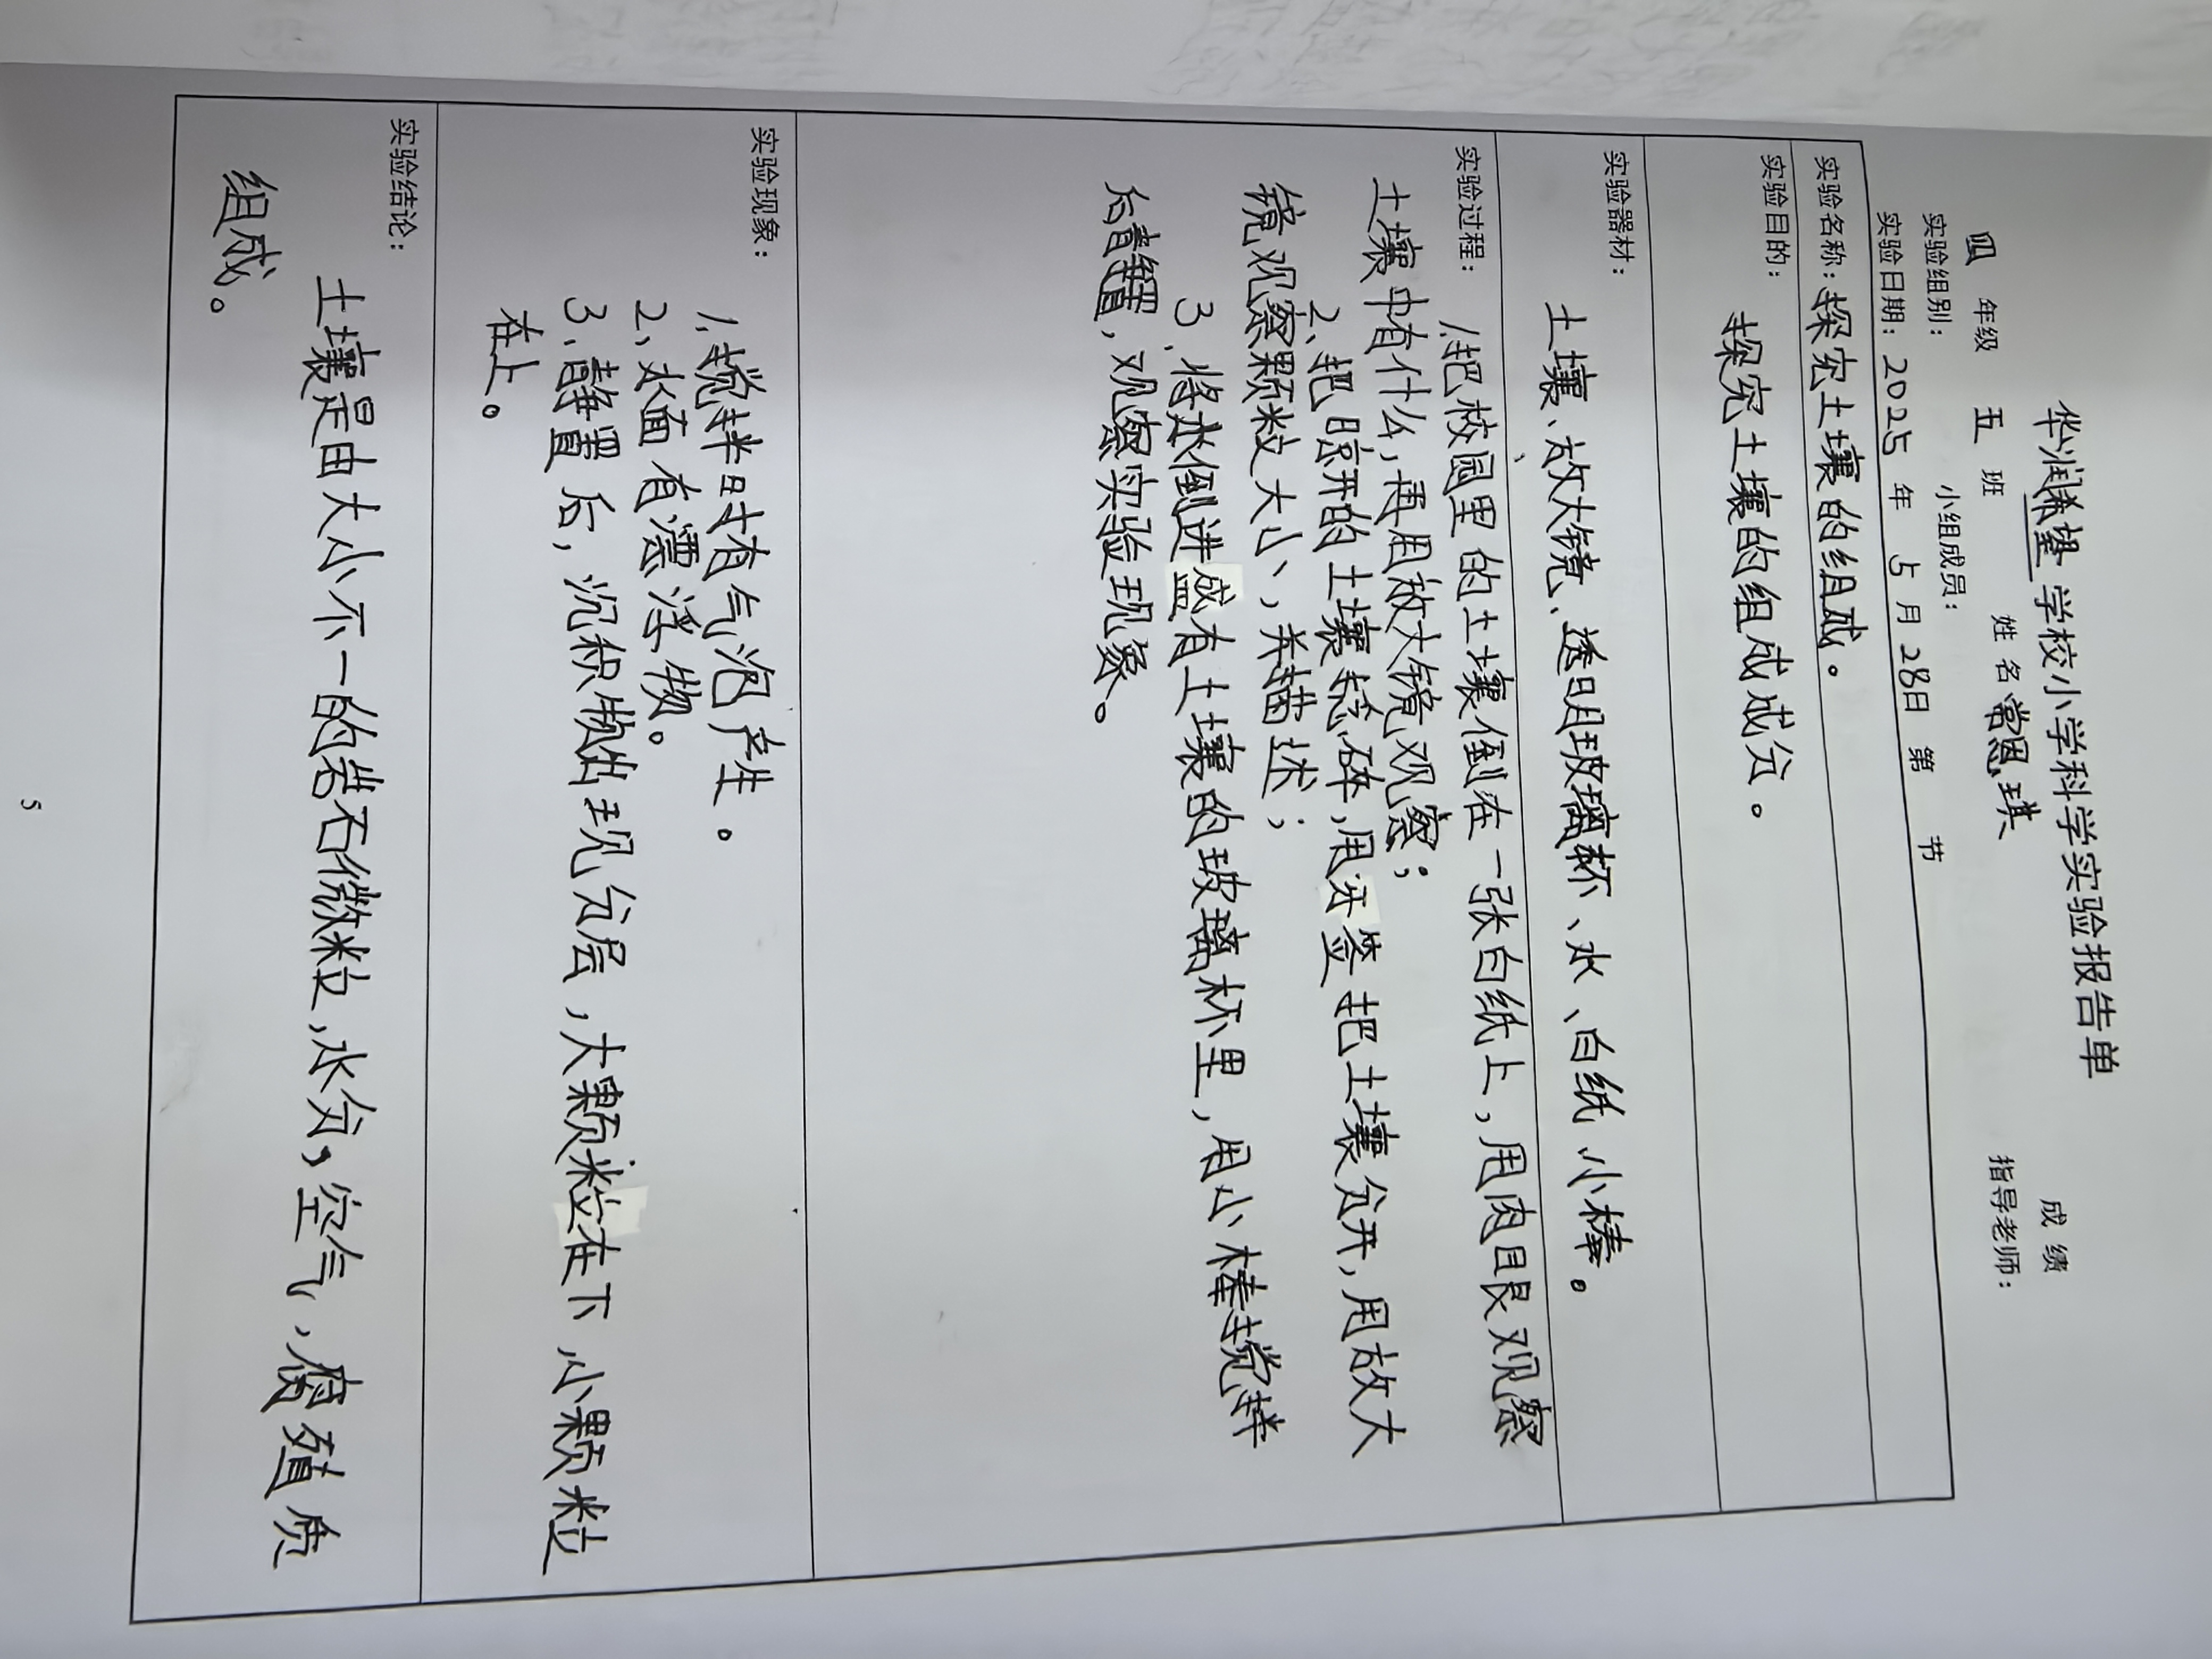 华润希望学校小学科学实验报告单
成绩
四 年级 五 班 姓名 常恩琪 指导老师：
实验组别： 小组成员：
实验日期：2025 年 5 月 28日 第 节
实验名称：探究土壤的组成。
实验目的：
探究土壤的组成成分。
实验器材：
土壤、放大镜、透明玻璃杯、水、白纸、小棒。
实验过程：
1.把校园里的土壤倒在一张白纸上，用肉眼观察
土壤中有什么，再用放大镜观察；
2.把晾干的土壤捻碎，用牙签把土壤分开，用放大
镜观察颗粒大小，并描述；
3.将水倒进盛有土壤的玻璃杯里，用小棒搅拌
后静置，观察实验现象。
实验现象：
1.搅拌时有气泡产生。
2、水面有漂浮物。
3.静置后，沉积物出现分层，大颗粒在下，小颗粒
在上。
实验结论：
土壤是由大小不一的岩石微粒，水分，空气，腐殖质
组成。
5